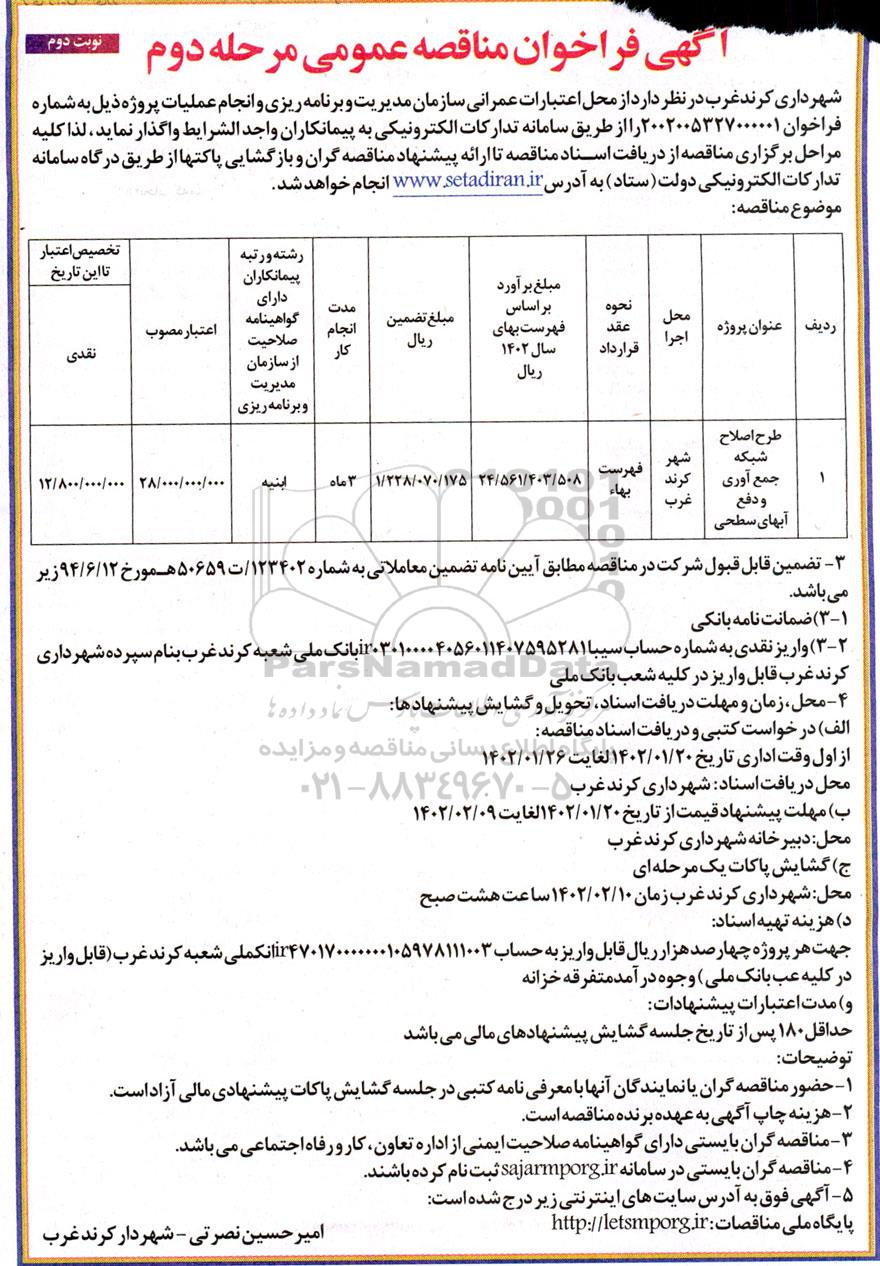 نوبت دوم
آگهی فراخوان مناقصه عمومی مرحله دوم
شهرداری کرند غرب در نظر دارد از محل اعتبارات عمرانی سازمان مدیریت و برنامه ریزی و انجام عملیات پروژه ذیل به شماره
فراخوان ۲۰۰۲۰۰۵۳۲۷۰۰۰۰۰۱ را از طریق سامانه تدارکات الکترونیکی به پیمانکاران واجد الشرایط واگذار نماید، لذا کلیه
مراحل برگزاری مناقصه از دریافت اسناد مناقصه تا ارائه پیشنهاد مناقصه گران و بازگشایی پاکتها از طریق درگاه سامانه
تدارکات الکترونیکی دولت (ستاد) به آدرس www.setadiran.ir انجام خواهد شد.
موضوع مناقصه:
ردیف
عنوان پروژه
محل
اجرا
نحوه
عقد
قرارداد
مبلغ برآورد
بر اساس
فهرست بهای
سال ۱۴۰۲
ریال
مبلغ تضمین
ریال
مدت
انجام
کار
رشته و رتبه
پیمانکاران
دارای
گواهینامه
صلاحیت
از سازمان
مدیریت
و برنامه ریزی
اعتبار مصوب
تخصیص اعتبار
تا این تاریخ
نقدی
۱
طرح اصلاح
شبکه
جمع آوری
و دفع
آبهای سطحی
شهر
کرند
غرب
فهرست
بهاء
۲۴/۵۶۱/۴۰۳/۵۰۸
۱/۲۲۸/۰۷۰/۱۷۵
۳ ماه
ابنیه
۲۸/۰۰۰/۰۰۰/۰۰۰
۱۲/۸۰۰/۰۰۰/۰۰۰
۳- تضمین قابل قبول شرکت در مناقصه مطابق آیین نامه تضمین معاملاتی به شماره ۱۲۳۴۰۲/ت ۵۰۶۵۹هـ مورخ ۹۴/۶/۱۲ زیر
می باشد.
۳-۱) ضمانت نامه بانکی
۳-۲) واریز نقدی به شماره حساب سیبا ir۰۳۰۱۰۰۰۰۴۰۵۶۰۱۱۴۰۷۵۹۵۲۸۱ بانک ملی شعبه کرند غرب بنام سپرده شهرداری
کرند غرب قابل واریز در کلیه شعب بانک ملی
۴-محل، زمان و مهلت دریافت اسناد، تحویل و گشایش پیشنهادها:
الف) درخواست کتبی و دریافت اسناد مناقصه:
از اول وقت اداری تاریخ ۱۴۰۲/۰۱/۲۰ لغایت ۱۴۰۲/۰۱/۲۶
محل دریافت اسناد: شهرداری کرند غرب
ب) مهلت پیشنهاد قیمت از تاریخ ۱۴۰۲/۰۱/۲۰ لغایت ۱۴۰۲/۰۲/۰۹
محل: دبیرخانه شهرداری کرند غرب
ج) گشایش پاکات یک مرحله ای
محل: شهرداری کرند غرب زمان ۱۴۰۲/۰۲/۱۰ ساعت هشت صبح
د) هزینه تهیه اسناد:
جهت هر پروژه چهارصد هزار ریال قابل واریز به حساب ir۴۷۰۱۷۰۰۰۰۰۰۰۱۰۵۹۷۸۱۱۱۰۰۳انک ملی شعبه کرند غرب (قابل واریز
در کلیه عب بانک ملی) وجوه درآمد متفرقه خزانه
و) مدت اعتبارات پیشنهادات:
حداقل ۱۸۰ پس از تاریخ جلسه گشایش پیشنهادهای مالی می باشد
توضیحات:
۱-حضور مناقصه گران یا نمایندگان آنها با معرفی نامه کتبی در جلسه گشایش پاکات پیشنهادی مالی آزاد است.
۲-هزینه چاپ آگهی به عهده برنده مناقصه است.
۳-مناقصه گران بایستی دارای گواهینامه صلاحیت ایمنی از اداره تعاون، کار و رفاه اجتماعی می باشد.
۴-مناقصه گران بایستی در سامانه sajarmporg.ir ثبت نام کرده باشند.
۵- آگهی فوق به آدرس سایت های اینترنتی زیر درج شده است:
پایگاه ملی مناقصات: http://letsmporg.ir
امیرحسین نصرتی - شهردار کرند غرب
ParsNamadData
پایگاه اطلاع رسانی مناقصه و مزایده
۰۲۱-۸۸۳۴۹۶۷۰-۵